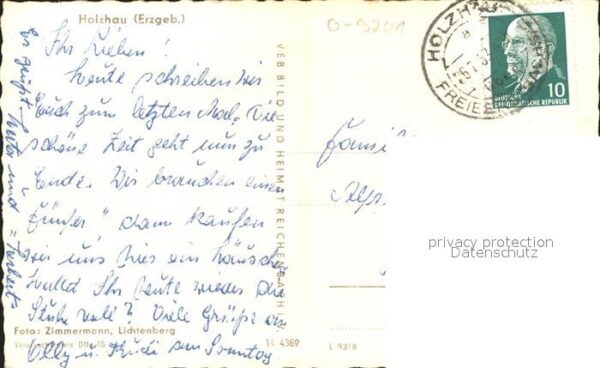 Holzhau (Erzgeb.)
O-9201
Ihr Lieben!
Heute schreiben wir
Euch zum letzten Mal, die
schöne Zeit geht nun zu
Ende. Wir brauchen einen
"Fünfer" dann kaufen
wir uns hier ein Häuschen
Hattet Ihr heute wieder die
Stube voll? Viele Grüße an
Olly u. am Sonntag
Es grüßt
und
Foto: Zimmermann, Lichtenberg
14 4389
VEB BILD UND HEIMAT REICHENBACH I.
L 9318
Famil
HOLZH
FREIBE
DEUTSCHE
DEMOKRATISCHE REPUBLIK
10
privacy protection
Datenschutz